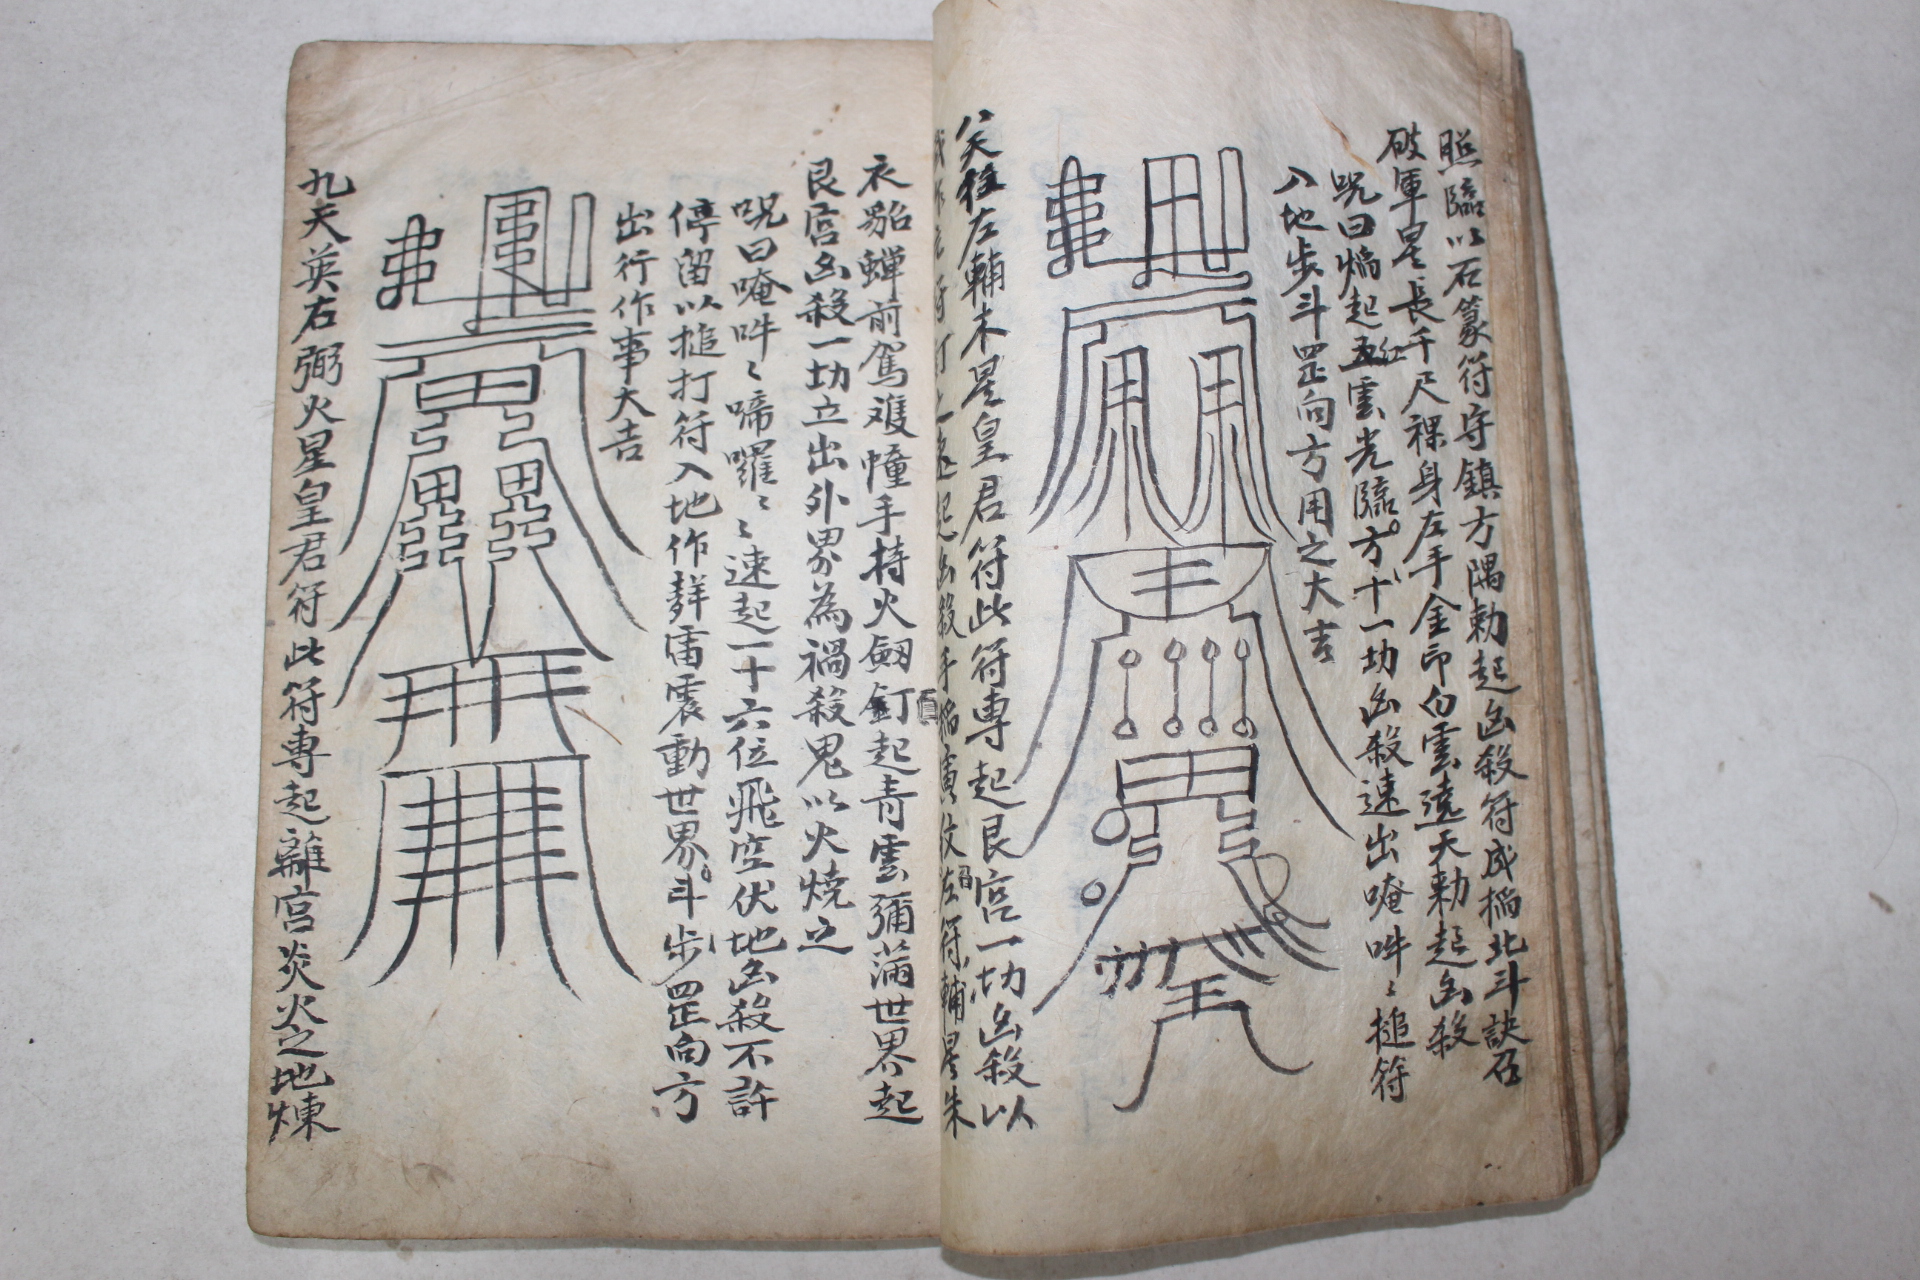 照臨以石篆符守鎮方隅勅起凶殺符成搯北斗訣召
破軍星長千尺裸身左手金印白雲遶天勅起凶殺
咒曰焔起五紅雲光臨方十一切凶殺速出唵吽〻搥符
入地步斗罡向方用之大吉
八天任左輔木星皇君符此符專起艮宮一切凶殺以
起凶殺手搯寅紋左符輔星朱
衣貂蟬前駕雞幢手持火劒釘起青雲彌滿世界起
艮宮凶殺一切立出外界為禍殺鬼以火燒之
咒曰唵吽〻啼囉〻〻速起一十六位飛空伏地凶殺不許
停留以搥打符入地作群雷震動世界斗步罡向方
出行作事大吉
九天英右弼火星皇君符此符專起離宮炎火之地煉